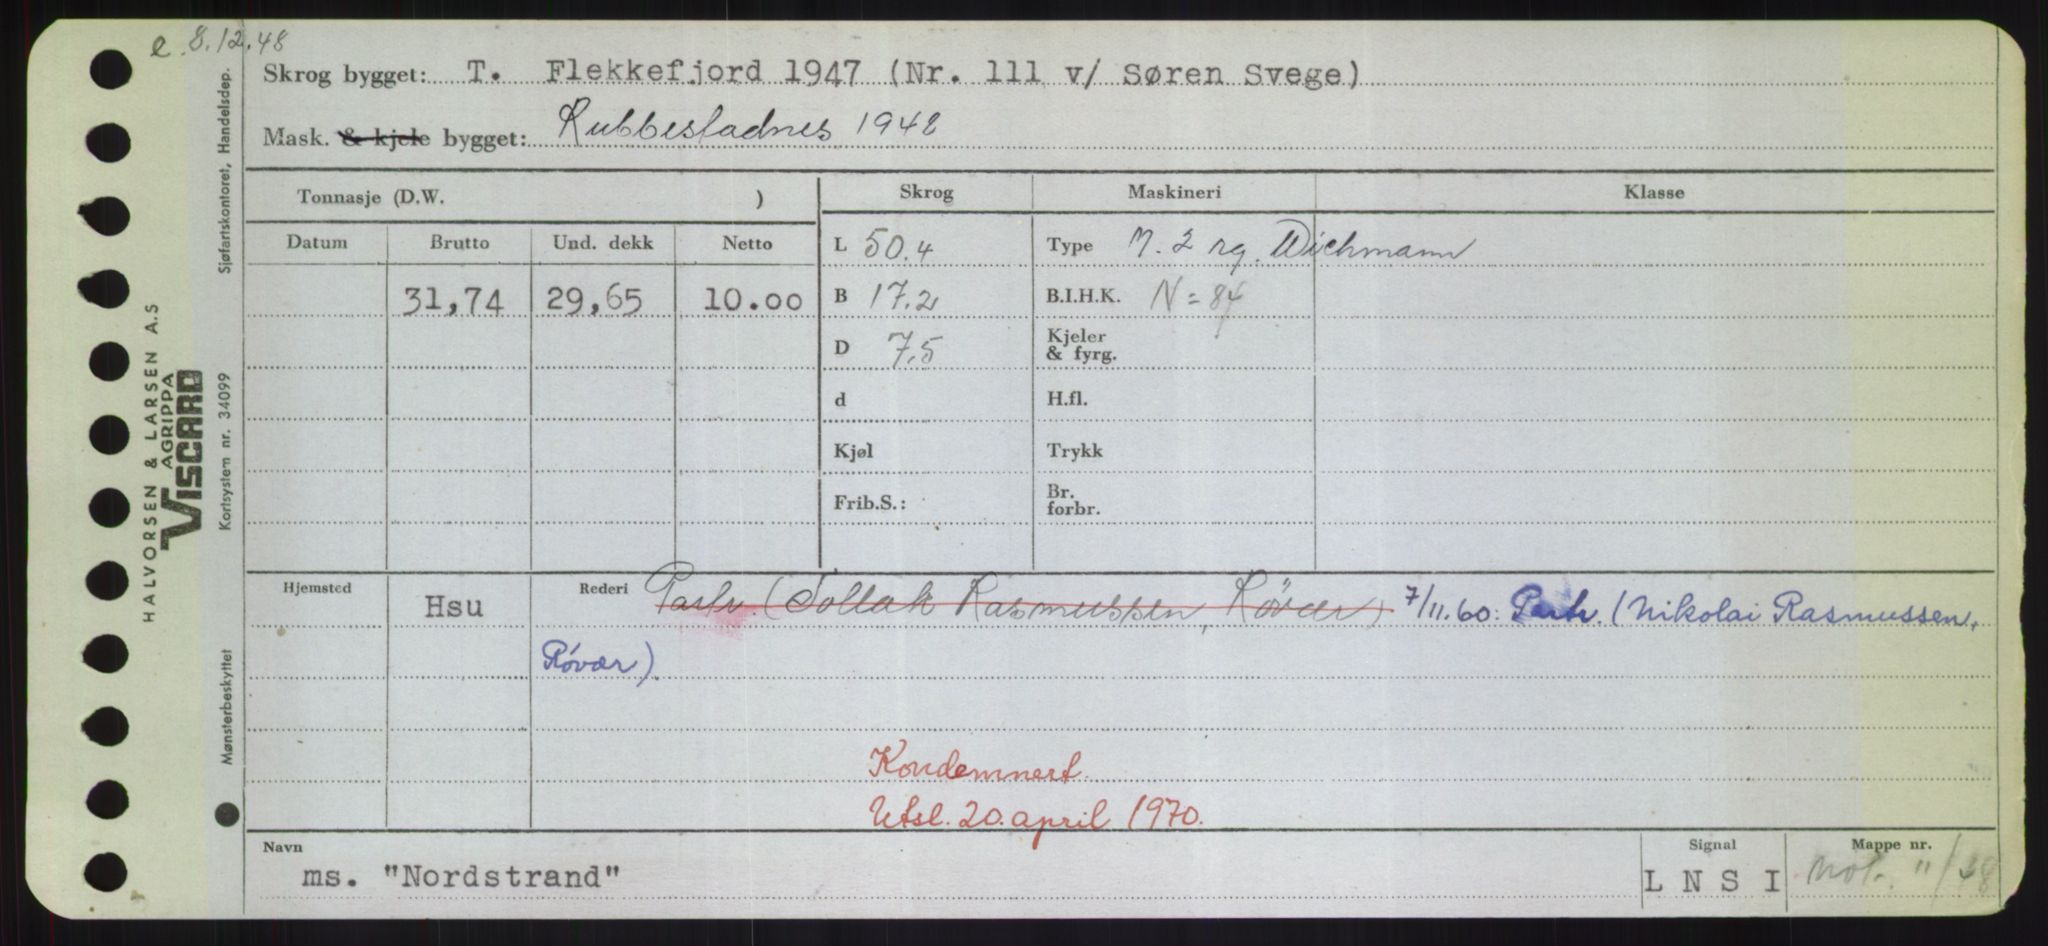 e. 8.12.48
Skrog bygget: T. Flekkefjord 1947 (Nr. 111 v/ Søren Svege)
Mask. & kjele bygget: Rubbestadnes 1948
Tonnasje (D.W. )
Skrog Maskineri Klasse
Datum Brutto Und. dekk Netto
31,74 29,65 10.00
L 50.4
B 17.2
D 7.5
d
Kjøl
Frib.S.:
Type M. 2 sg. Wichmann
B.I.H.K. N = 84
Kjeler
& fyrg.
H.fl.
Trykk
Br.
forbr.
Hjemsted Hsu
Rederi Partr. (Tollak Rasmussen, Røvær) 7/11.60: Partr. (Nikolai Rasmussen,
Røvær).
Kondemnert
Utsl. 20. april 1970.
Navn ms. "Nordstrand"
Signal L N S I
Mappe nr.
Sjøfartskontoret, Handelsdep.
Kortsystem nr. 34099
Mønsterbeskyttet
HALVORSEN & LARSEN A.S
AGRIPPA
VISCARD